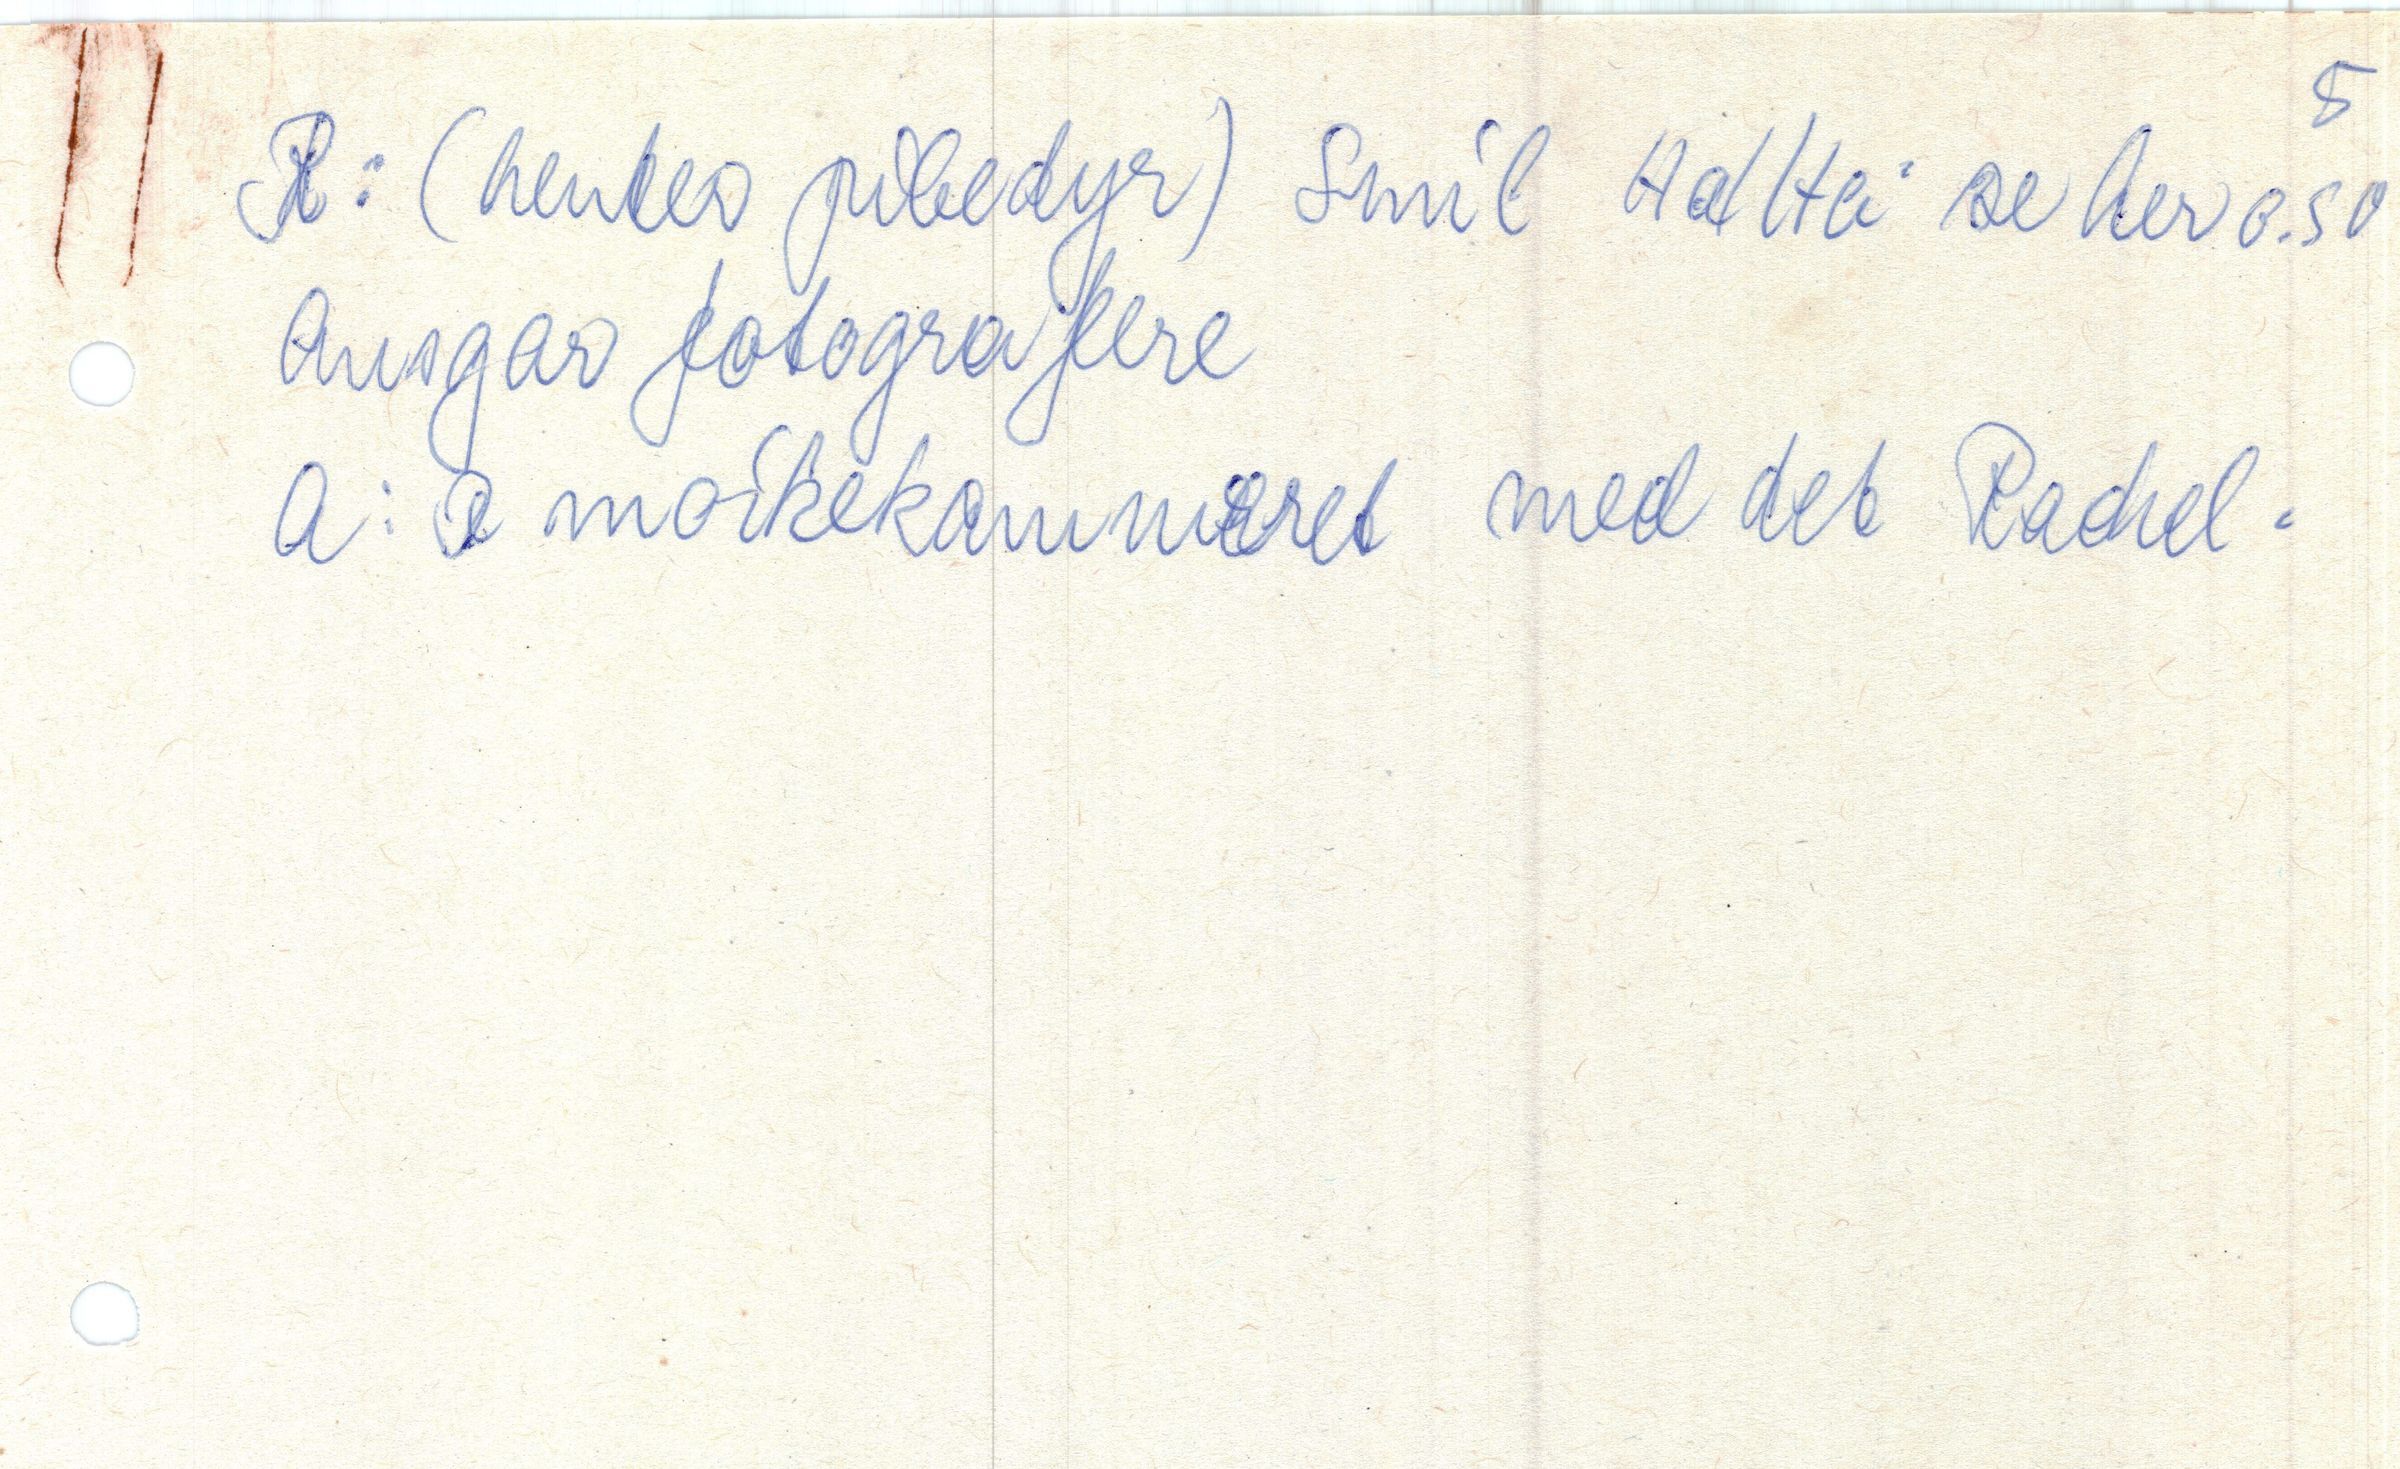 5
R: (hentes pibedyr) Smil Halløj se her o.s.v
Ansgar fotografere
A: I mørkekammeret med det Rachel.